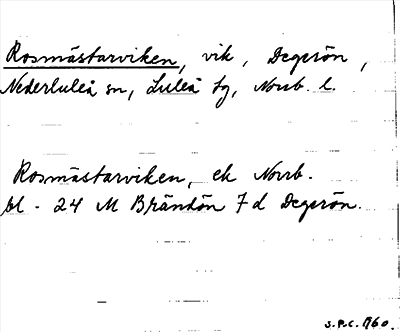 Rosmästarviken, vik, Degerön,
Nederluleå sn, Luleå tg, Norrb. l.
Rosmästarviken, ek Norrb.
bl. 24 M Brändön 7d Degerön.
S.P.C. 1960.